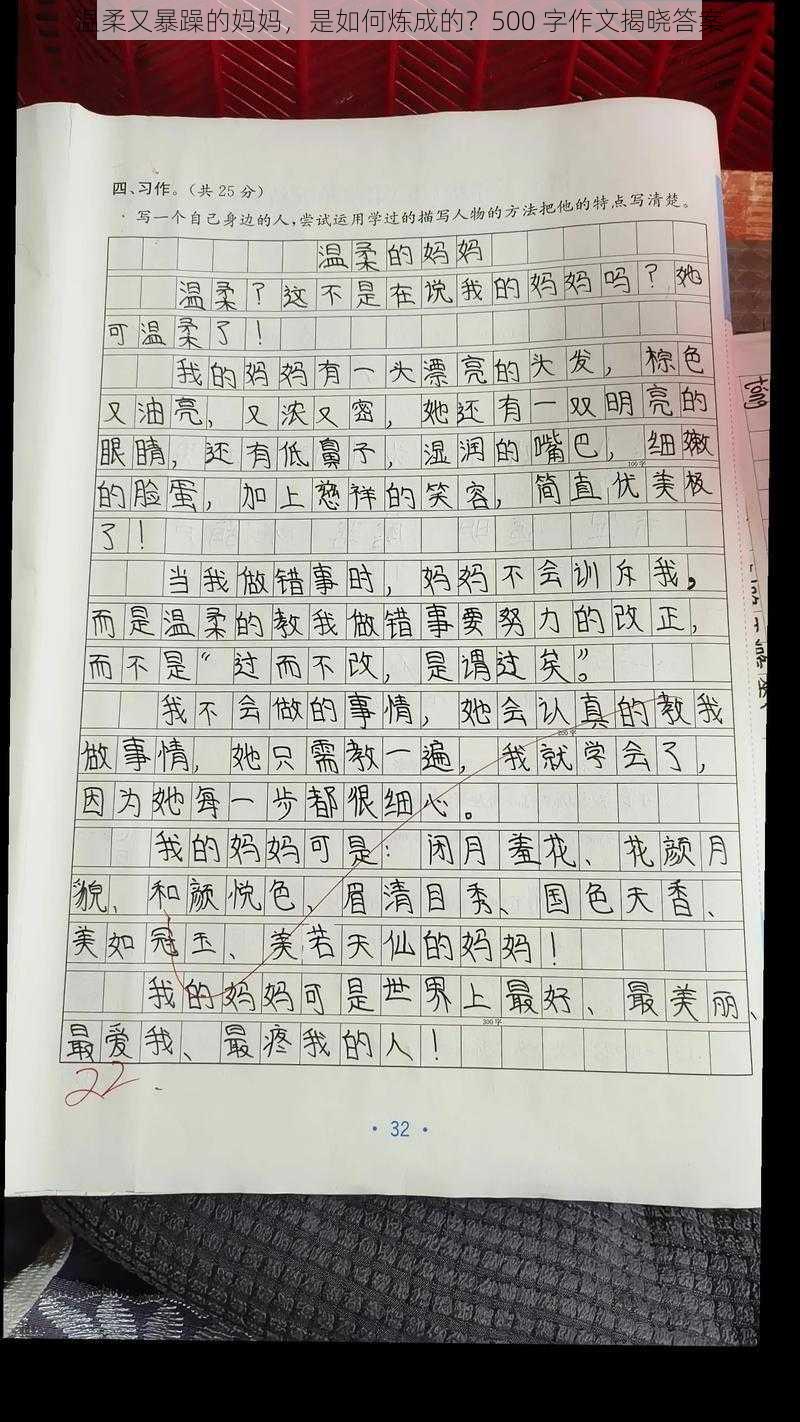 温柔又暴躁的妈妈，是如何炼成的？500 字作文揭晓答案
四、习作。（共 25 分）
· 写一个自己身边的人，尝试运用学过的描写人物的方法把他的特点写清楚。
温柔的妈妈
温柔？这不是在说我的妈妈吗？她
可温柔了！
我的妈妈有一头漂亮的头发，棕色
又油亮，又浓又密，她还有一双明亮的
眼睛，还有低鼻子，湿润的嘴巴，细嫩
100字
的脸蛋，加上慈祥的笑容，简直优美极
了！
当我做错事时，妈妈不会训斥我，
而是温柔的教我做错事要努力的改正，
而不是“过而不改，是谓过矣”。
我不会做的事情，她会认真的教我
200字
做事情，她只需教一遍，我就学会了，
因为她每一步都很细心。
我的妈妈可是：闭月羞花、花颜月
貌、和颜悦色、眉清目秀、国色天香、
美如冠玉、美若天仙的妈妈！
我的妈妈可是世界上最好、最美丽、
300字
最爱我、最疼我的人！
22
· 32 ·